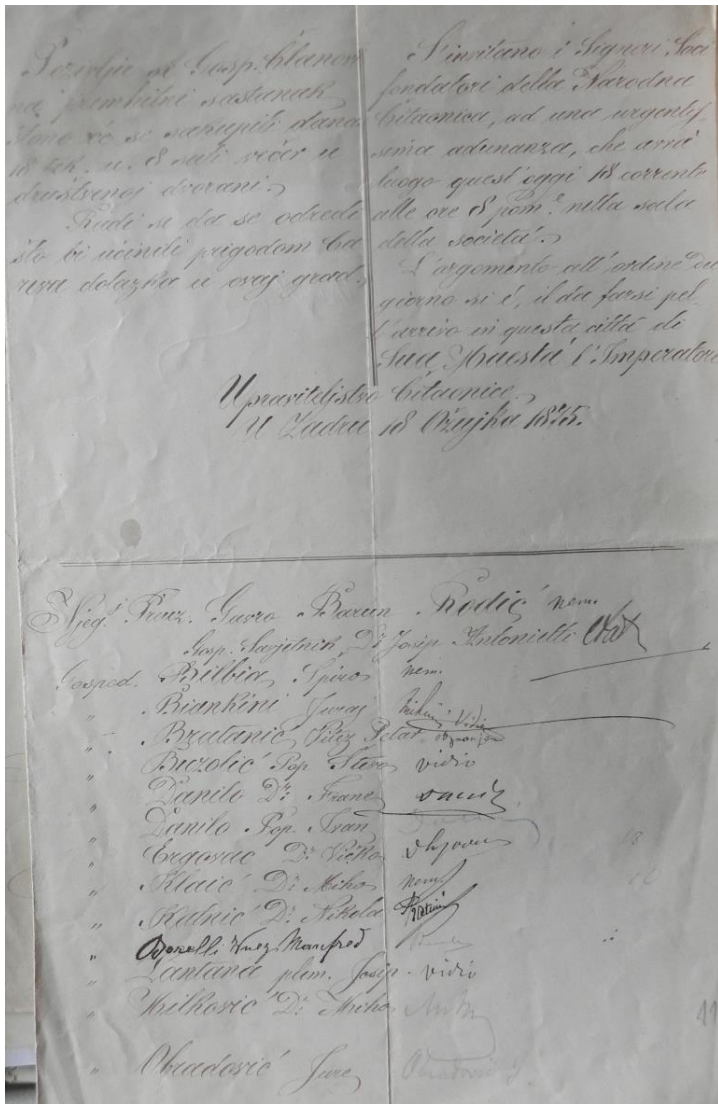 Pozivlju se Gosp. Članovi
na prembitni sastanak
što no će se sakupiti dana
18 tek. u 8 sati večer u
društvenoj dvorani.
Radi se da se odredi
što bi učiniti prigodom Ca
reva dolazka u ovaj grad.
S'invitano i Signori Soci
fondatori della Narodna
Čitaonica, ad una urgentis
sima adunanza, che avrà
luogo quest'oggi 18 corrente
alle ore 8 pom.e nella sala
della società.
L'argomento all'ordine du
giorno si è, il da farsi pel
l'arrivo in questa città di
Sua Maestà l'Imperatore
Upraviteljstvo Čitaonice
U Zadru 18 Ožujka 1875.
Njeg. Preuz. Gavro Barun Rodić nem.
Gosp. Savjetnik, Dr Josip Antonietti
Gospod. Bilbia Spiro nem.
" Biankini Juraj
" Bratanić Vitez Petar
" Buzolić Pop Stevo vidio
" Danilo Dr. Frane
" Danilo Pop Ivan
" Ergovac Dr Vicko
" Klaić Dr Miho nem
" Katnić Dr. Nikola
" Borelli Knez Manfred
" Lantana plem. Josip vidio
" Milković Dr Miho
" Obradović Jure Obradović J.